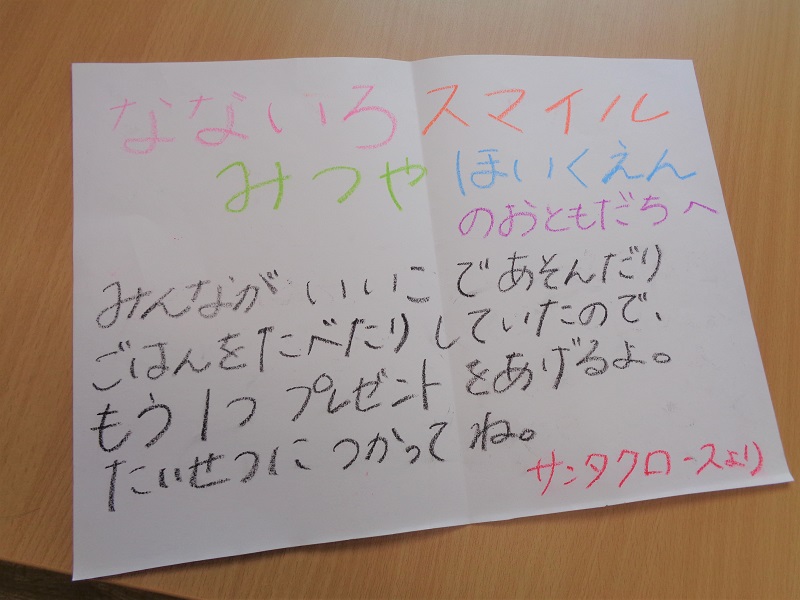 なないろスマイル
みつやほいくえん
のおともだちへ
みんなが いいこであそんだり
ごはんをたべたりしていたので、
もう1つ プレゼントをあげるよ。
たいせつに つかってね。
サンタクロースより